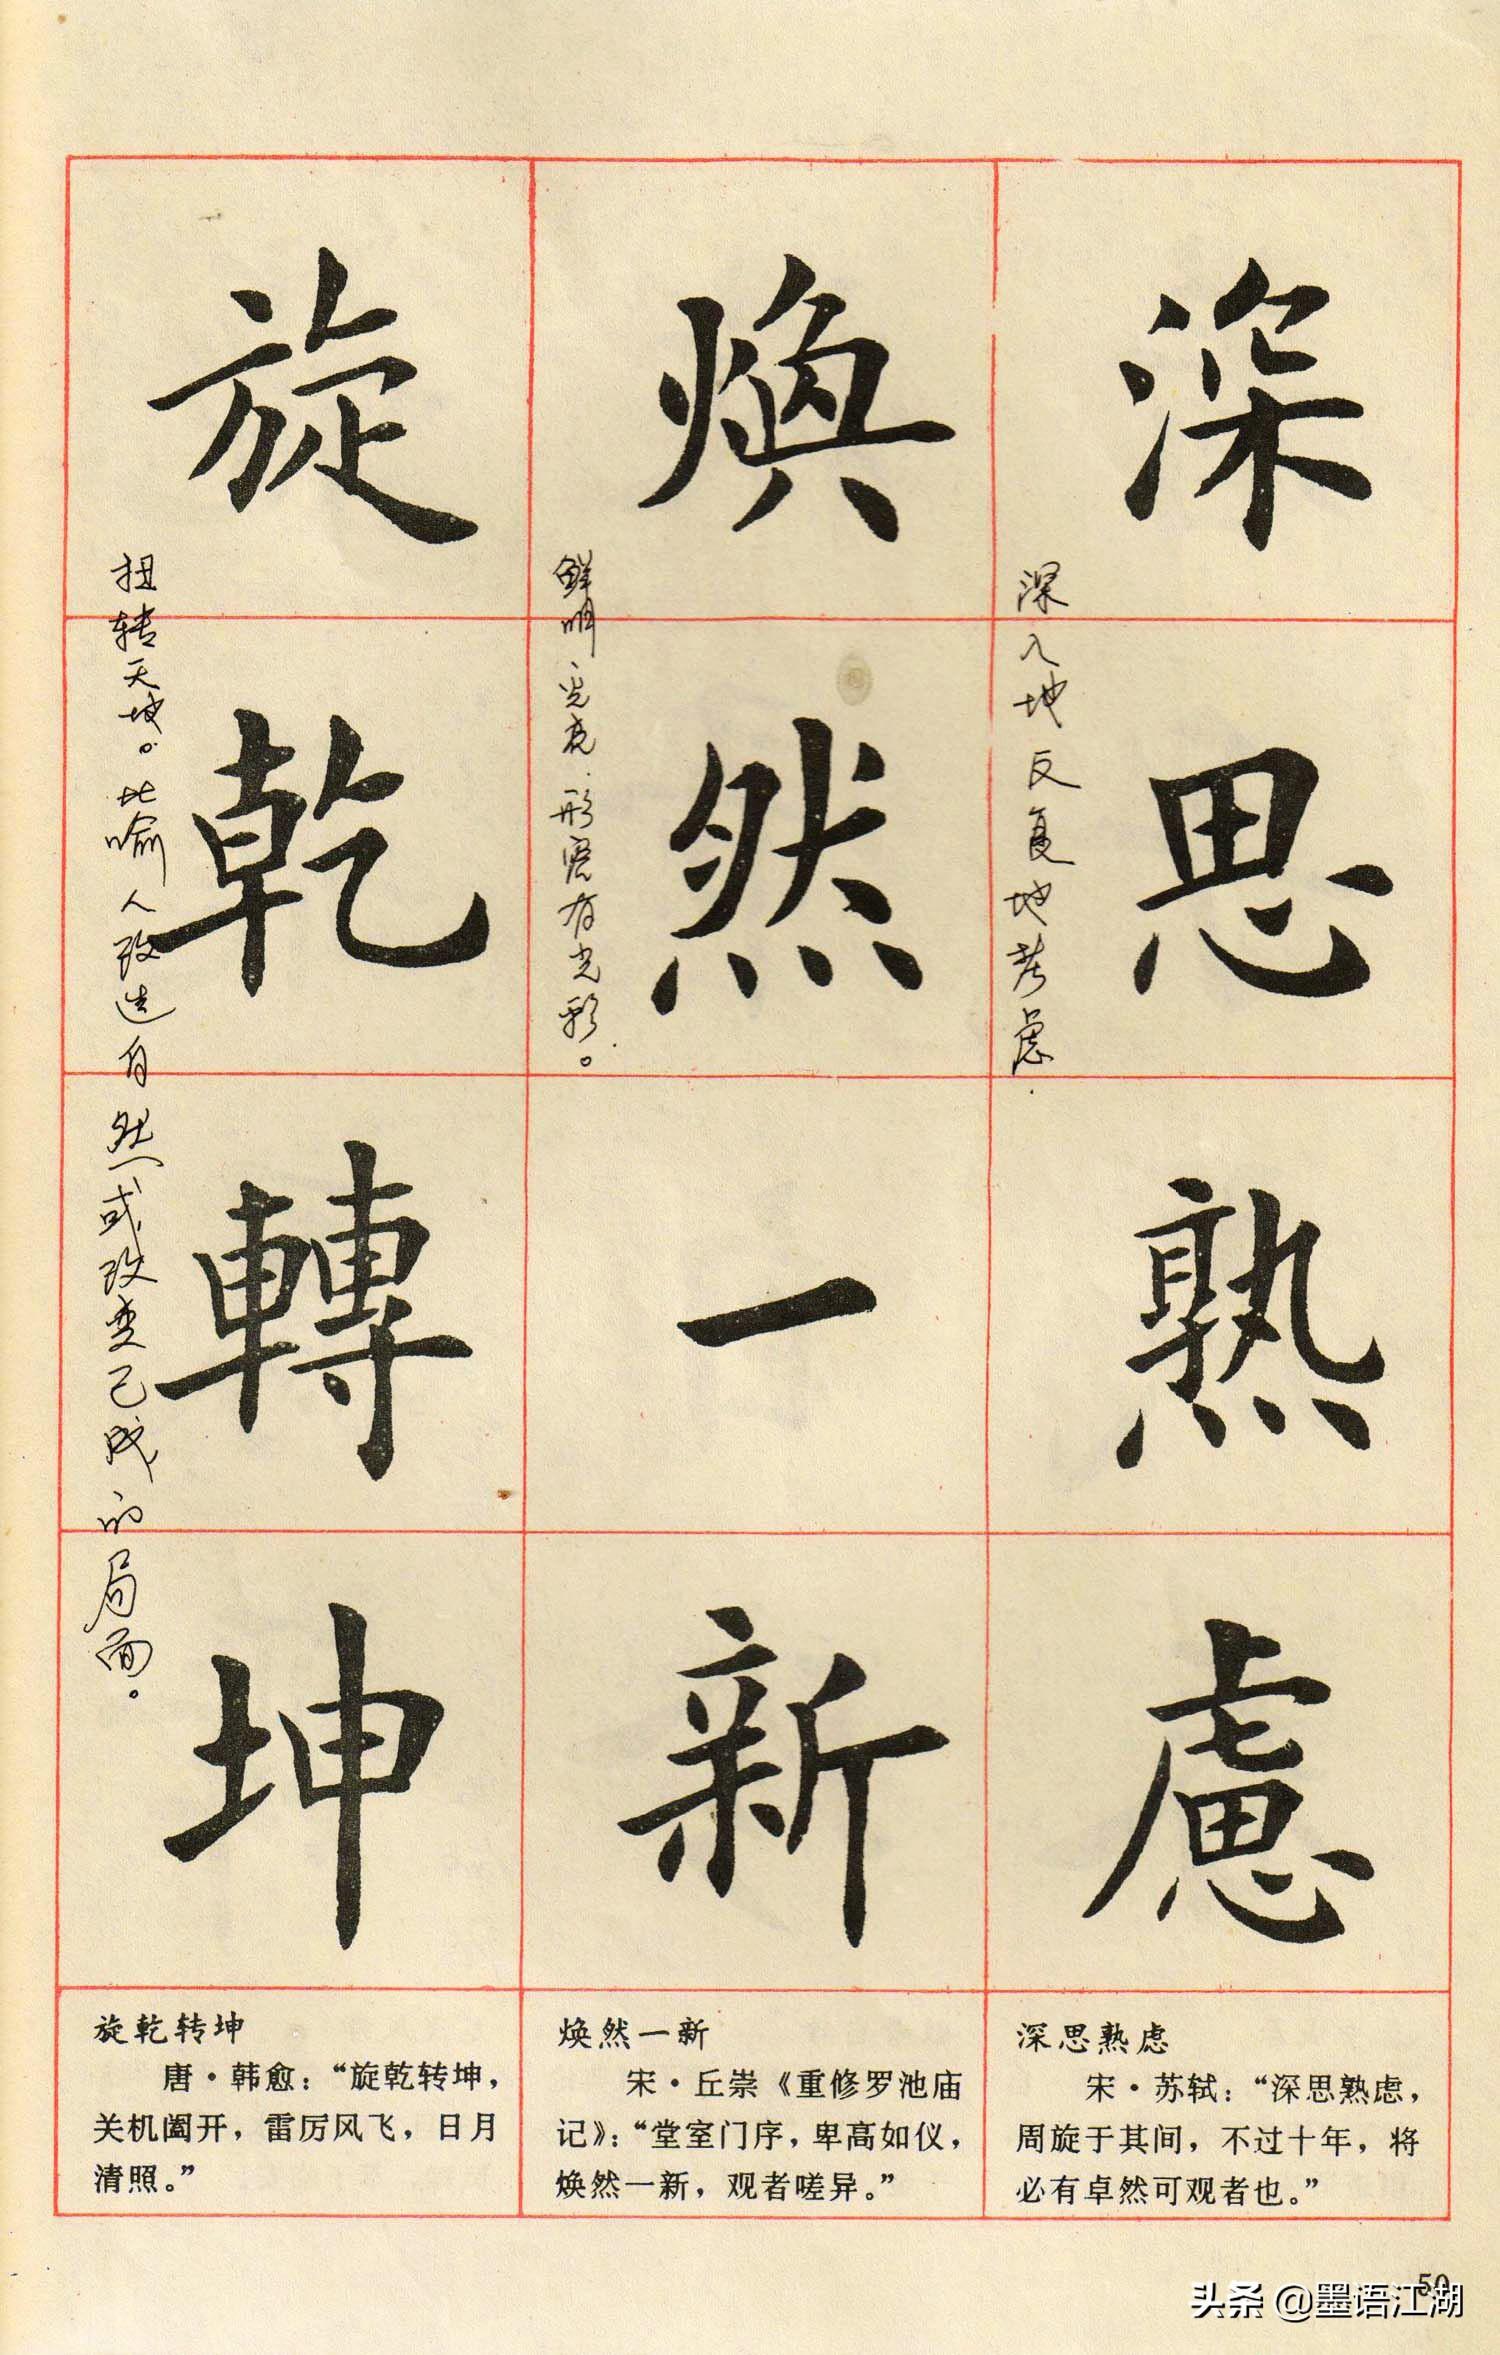 深思熟慮
深入地反复地考虑.
煥然一新
鲜明、光亮.形容有光彩。
旋乾轉坤
扭转天地。比喻人改造自然或改变已成的局面。
深思熟虑
宋·苏轼：“深思熟虑，
周旋于其间，不过十年，将
必有卓然可观者也。”
焕然一新
宋·丘崇《重修罗池庙
记》：“堂室门序，卑高如仪，
焕然一新，观者嗟异。”
旋乾转坤
唐·韩愈：“旋乾转坤，
关机阖开，雷厉风飞，日月
清照。”
50
头条 @墨语江湖